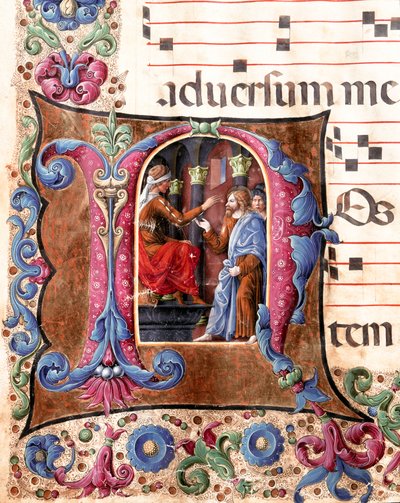 aduersum me
NOs
tem